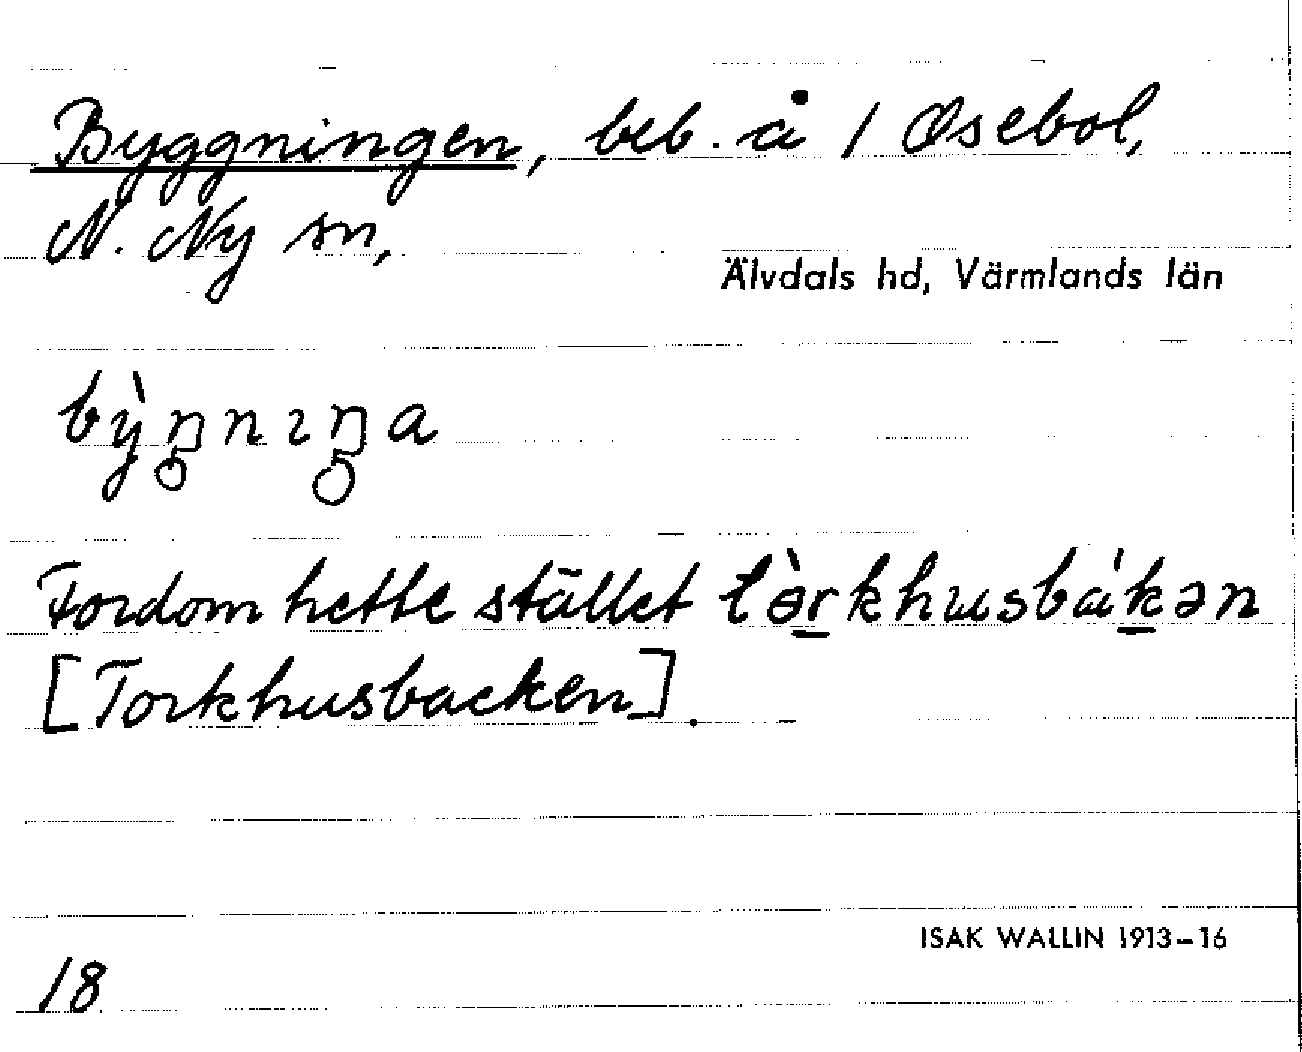 Byggningen, beb. å 1 Øsebol,
N. Ny sn,
Älvdals hd, Värmlands län
bỳŋnıŋa
Fordom hette stället tə̀rkhusbákən
[Torkhusbacken].
ISAK WALLIN 1913–16
18